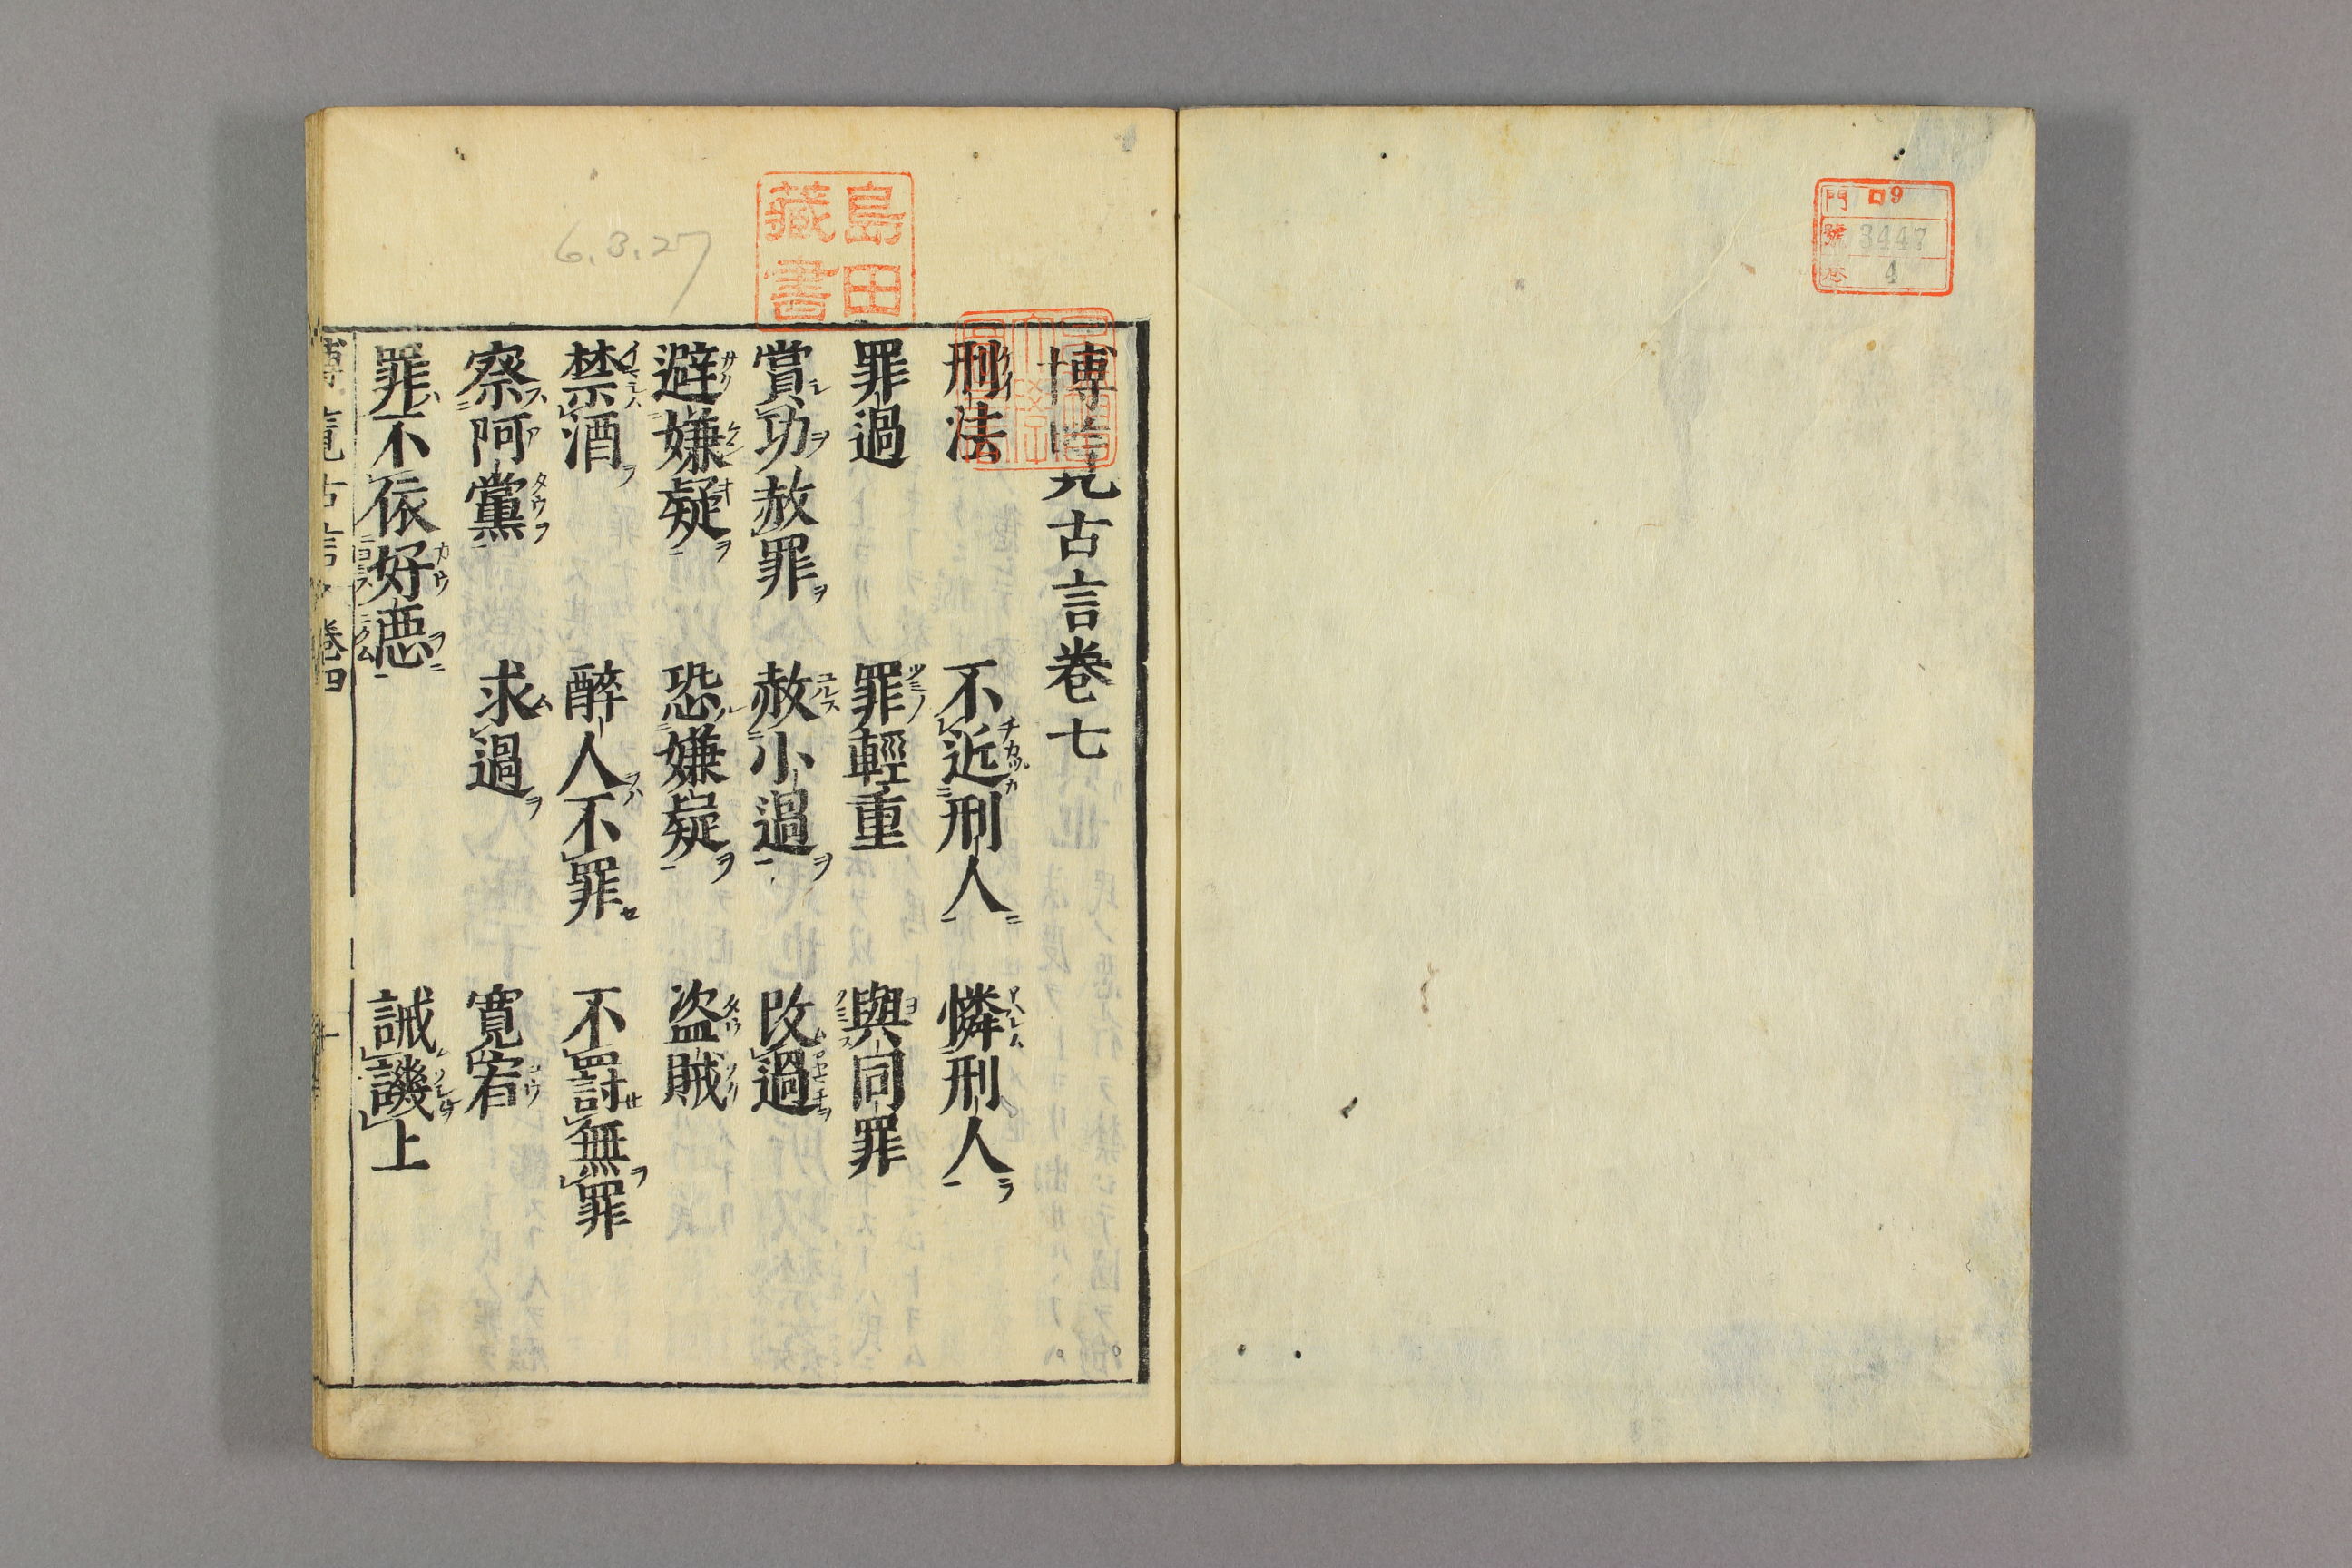 門 ロ9
號 3447
卷 4
島田
藏書
6.3.27
博覽古言卷七
刑法 不近刑人 憐刑人
罪過 罪輕重 與同罪
賞功赦罪 赦小過 改過
避嫌疑 恐嫌疑 盗賊
禁酒 醉人不罪 不罰無罪
察阿黨 求過 寛宥
罪不依好惡 誡譏上
博覽古言 卷四